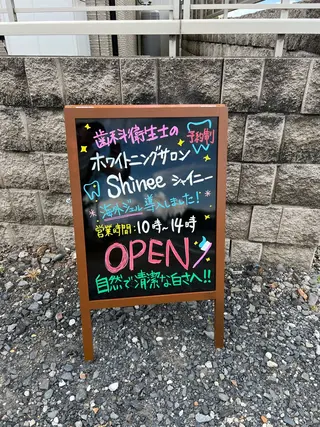 歯科衛生士の 予約制
ホワイトニングサロン
Shinee シャイニー
海外ジェル導入しました!
営業時間:10時~14時
OPEN
自然で清潔な白さへ!!